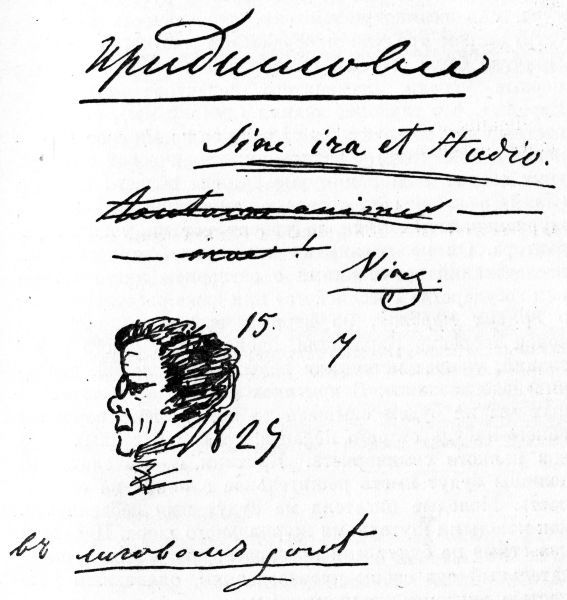 предисловие
Sine ira et studio.
Tantaene animis —
— irae!
Virg.
15 7
1829
въ